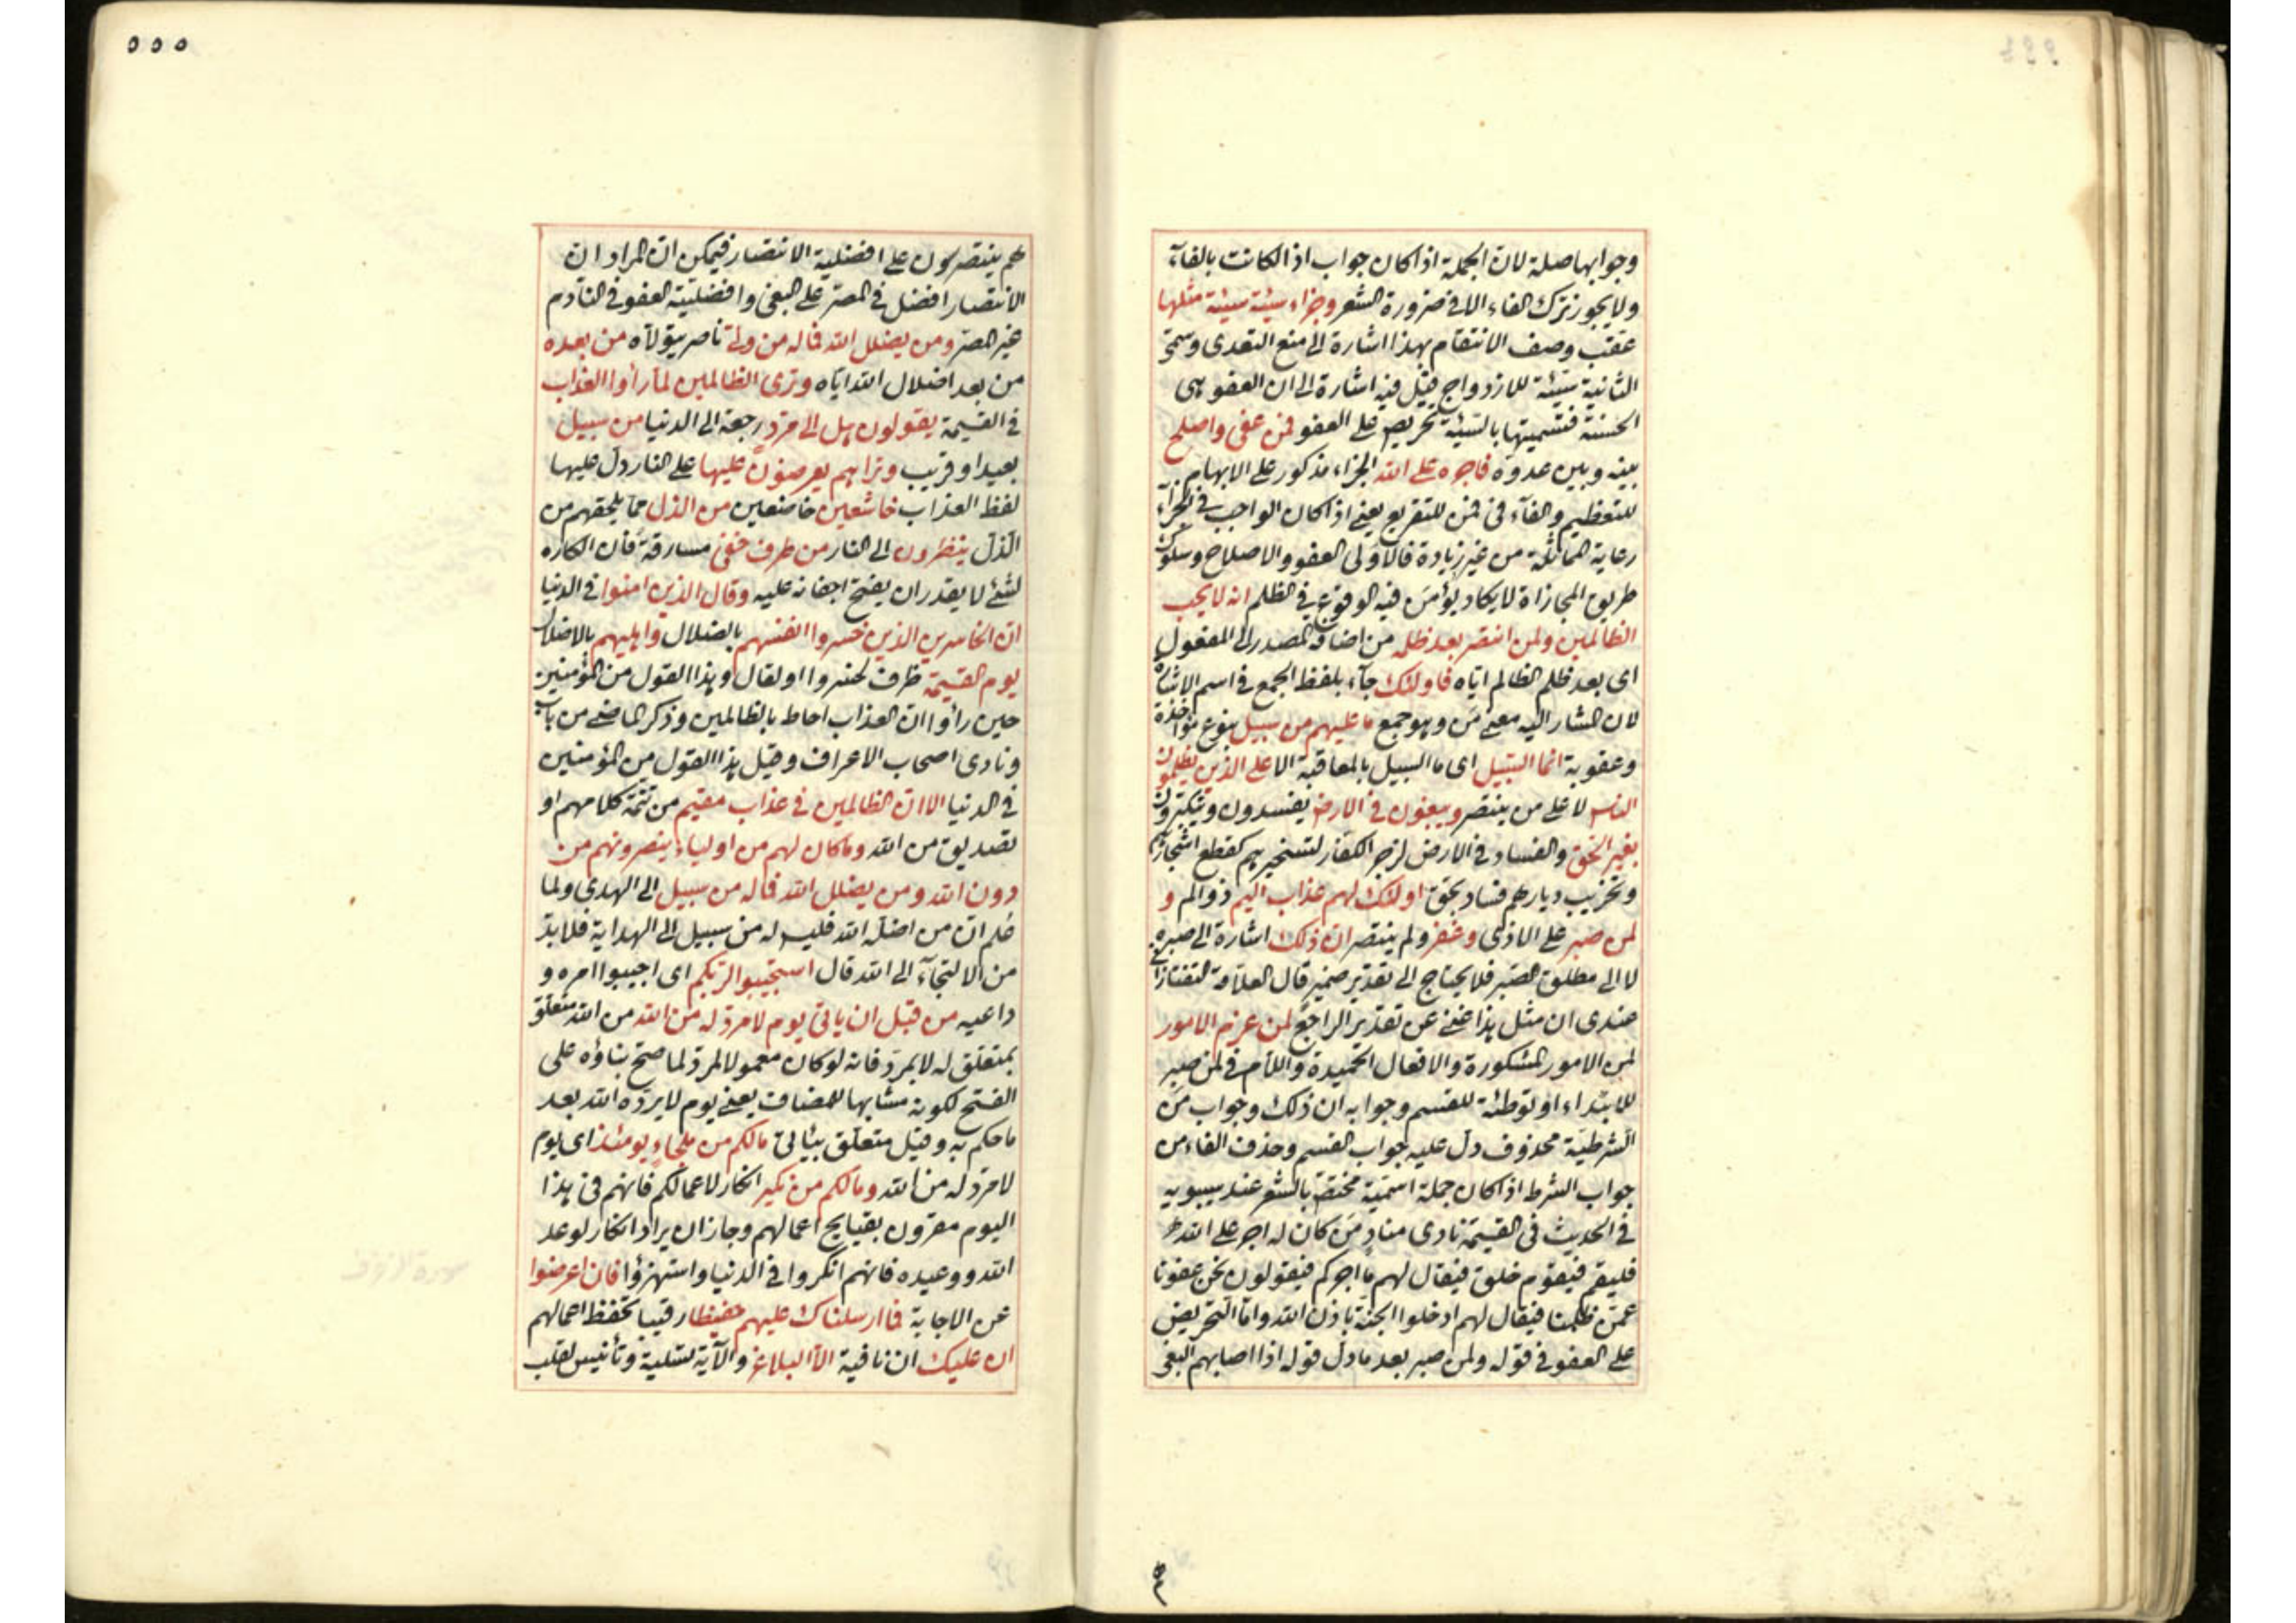 وجوابها صلة لان الجملة اذا كان جواب اذا لكانت بالفاء
ولا يجوز ترك الفاء الا في ضرورة الشعر وجزاء سيئة سيئة مثلها
عقب وصف الانتقام بهذا اشارة الى منع التعدى وسمى
الثانية سيئة للازدواج قيل فيه اشارة الى ان العفو هى
الحسنة فتسميتها بالسيئة تحريص على العفو فمن عفى واصلح
بينه وبين عدوه فاجره على الله الجزاء مذكور على الابهام
للتعظيم والفآء فى فمن للتفريع يعنى اذا كان الواجب فى الجزآء
رعاية المماثلة من غير زيادة فالاولى العفو والاصلاح وسلوك
طريق المجازاة لا يكاد يؤمن فيه الوقوع فى الظلم انه لا يحب
الظالمين ولمن انتصر بعد ظلمه من اضافة المصدر الى المفعول
اى بعد ظلم الظالم اياه فاولئك جآء بلفظ الجمع فى اسم الاشارة
لان المشار اليه معنى من وهو جمع ما عليهم من سبيل بنوع مؤاخذة
وعقوبة انما السبيل اى ما السبيل بالمعاقبة الا على الذين يظلمون
الناس لا على من ينتصر ويبغون فى الارض يفسدون ويتكبرون
بغير الحق والفساد فى الارض لزجر الكفار لتسخيرهم كقطع اشجارهم
وتخريب ديارهم فساد بحق اولئك لهم عذاب اليم ذو الم و
لمن صبر على الاذى وغفر ولم ينتصر ان ذلك اشارة الى صبره
لا الى مطلق الصبر فلا يحتاج الى تقدير ضمير قال العلامة التفتازانى
عندى ان مثل هذا غنى عن تقدير الراجع لمن عزم الامور
لمن الامور المشكورة والافعال الحميدة واللام فى لمن صبر
للابتداء او توطئة للقسم وجوابه ان ذلك وجواب من
الشرطية محذوف دل عليه جواب القسم وحذف الفاء من
جواب الشرط اذا كان جملة اسمية مختص بالشعر عند سيبويه
فى الحديث فى القيمة نادى مناد من كان له اجر على الله
فليقم فيقوم خلق فيقال لهم ما اجركم فيقولون نحن عفونا
عمن ظلمنا فيقال لهم ادخلوا الجنة باذن الله واما التحريض
على العفو فى قوله ولمن صبر بعد ما دل قوله اذا اصابهم البغى
٥٥٥
هم ينتصرون على افضلية الانتصار فيمكن ان المراد ان
الانتصار افضل فى المصر على البغى وافضلية العفو فى النادم
غير المصر ومن يضلل الله فما له من ولى ناصر يتولاه من بعده
من بعد اضلال الله اياه وترى الظالمين لما رأوا العذاب
فى القيمة يقولون هل الى مرد رجعة الى الدنيا من سبيل
بعيد او قريب وتراهم يعرضون عليها على النار دل عليها
لفظ العذاب خاشعين خاضعين من الذل مما يلحقهم من
الذل ينظرون الى النار من طرف خفى مسارقة فان الكاره
لشئ لا يقدر ان يفتح اجفانه عليه وقال الذين امنوا فى الدنيا
ان الخاسرين الذين خسروا انفسهم بالضلال واهليهم بالاضلال
يوم القيمة ظرف لخسروا او لقال وهذا القول من المؤمنين
حين رأوا ان العذاب احاط بالظالمين وذكر الماضى من باب
ونادى اصحاب الاعراف وقيل هذا القول من المؤمنين
فى الدنيا الا ان الظالمين فى عذاب مقيم من تتمة كلامهم او
تصديق من الله وما كان لهم من اولياء ينصرونهم من
دون الله ومن يضلل الله فما له من سبيل الى الهدى ولما
علم ان من اضله الله فليس له من سبيل الى الهداية فلا بد
من الالتجآء الى الله قال استجيبوا لربكم اى اجيبوا امره و
داعيه من قبل ان ياتى يوم لا مرد له من الله من الله متعلق
بمتعلق له لا بمرد فانه لو كان معمولا لمرد لما صح بناؤه على
الفتح لكونه مشابها للمضاف يعنى يوم لا يرده الله بعد
ما حكم به وقيل متعلق بياتى ما لكم من ملجاء يومئذ اى يوم
لا مرد له من الله وما لكم من نكير انكار لاعمالكم فانهم فى هذا
اليوم مقرون بقبايح اعمالهم وجاز ان يراد انكار لوعد
الله ووعيده فانهم انكروا فى الدنيا واستهزؤا فان اعرضوا
عن الاجابة فما ارسلناك عليهم حفيظا رقيبا تحفظ اعمالهم
ان عليك ان نافية الا البلاغ والآية تسلية وتأنيس لقلب